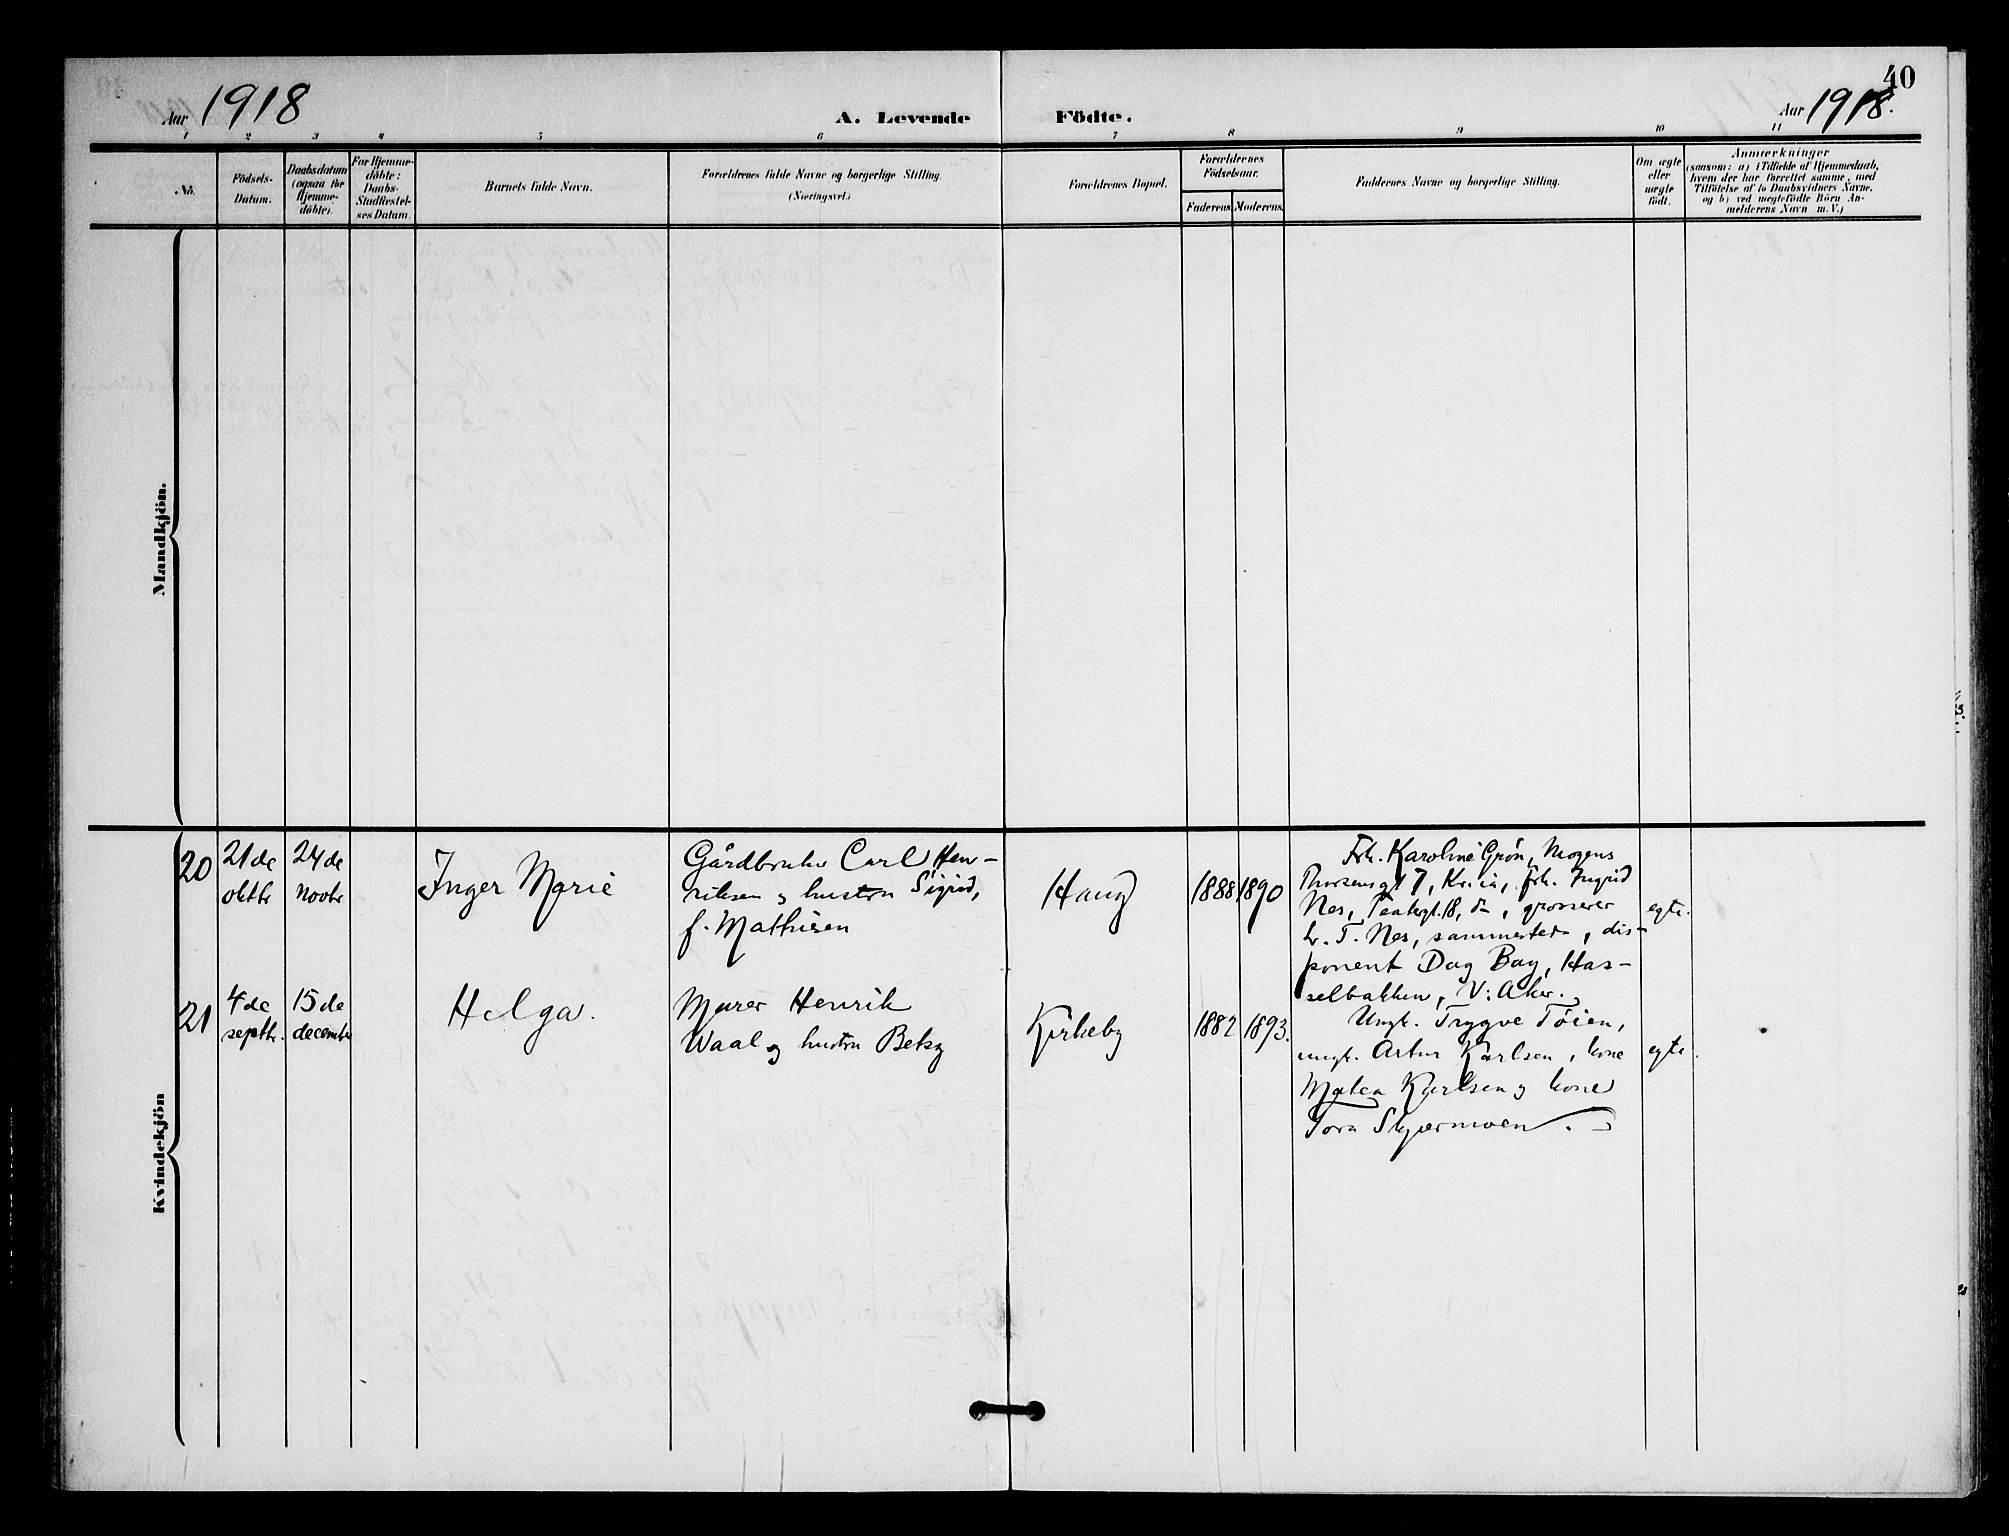 40
Aar 1918
A. Levende Födte.
Aar 1918.
1 2 3 4 5 6 7 8 9 10 11
No.
Födsels-
Datum.
Daabsdatum
(ogsaa for
Hjemme-
döbte).
For Hjemme-
döbte:
Daabs-
Stadfæstel-
ses Datum.
Barnets fulde Navn.
Forældrenes fulde Navne og borgerlige Stilling.
(Næringsvei.)
Forældrenes Bopæl.
Forældrenes
Födselsaar.
Faderens. Moderens.
Faddernes Navne og borgerlige Stilling.
Om ægte
eller
uægte
födt.
Anmærkninger
(saasom: a) i Tilfælde af Hjemmedaab,
hvem der har forrettet samme, med
Tilföielse af to Daabsvidners Navne,
og b) ved uægtefödte Börn An-
melderens Navn m. V.)
Mandkjön.
Kvindekjön
20
21de
oktbr
24de
novbr
Inger Marie
Gårdbruker Carl Hen-
riksen og hustru Sigrid,
f. Mathisen
Haug
1888
1890
Frk. Karoline Grön, Mogens
Thorsensgt 7, Kr.ia, frk. Ingrid
Nes, Teatergt. 18, do, grosserer
hr. T. Nes, sammesteds, dis-
ponent Dag Bay, Has-
selbakken, V: Aker.
egte.
21
4de
septbr.
15de
decembr
Helga.
Murer Henrik
Waal og hustru Betsy
Kirkeby
1882
1893.
Ungk. Trygve Töien,
ungk. Artur Karlsen, kone
Matea Karlsen og kone
Tora Skjærmoen.
egte.